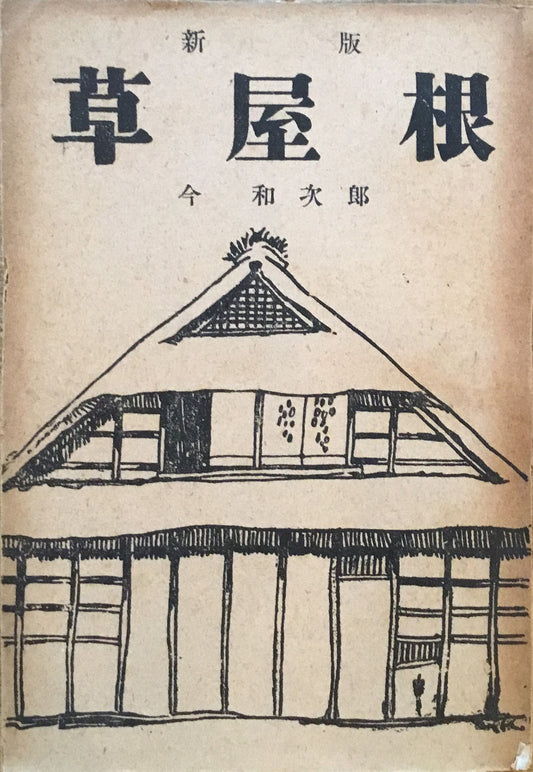 新版
草屋根
今和次郎